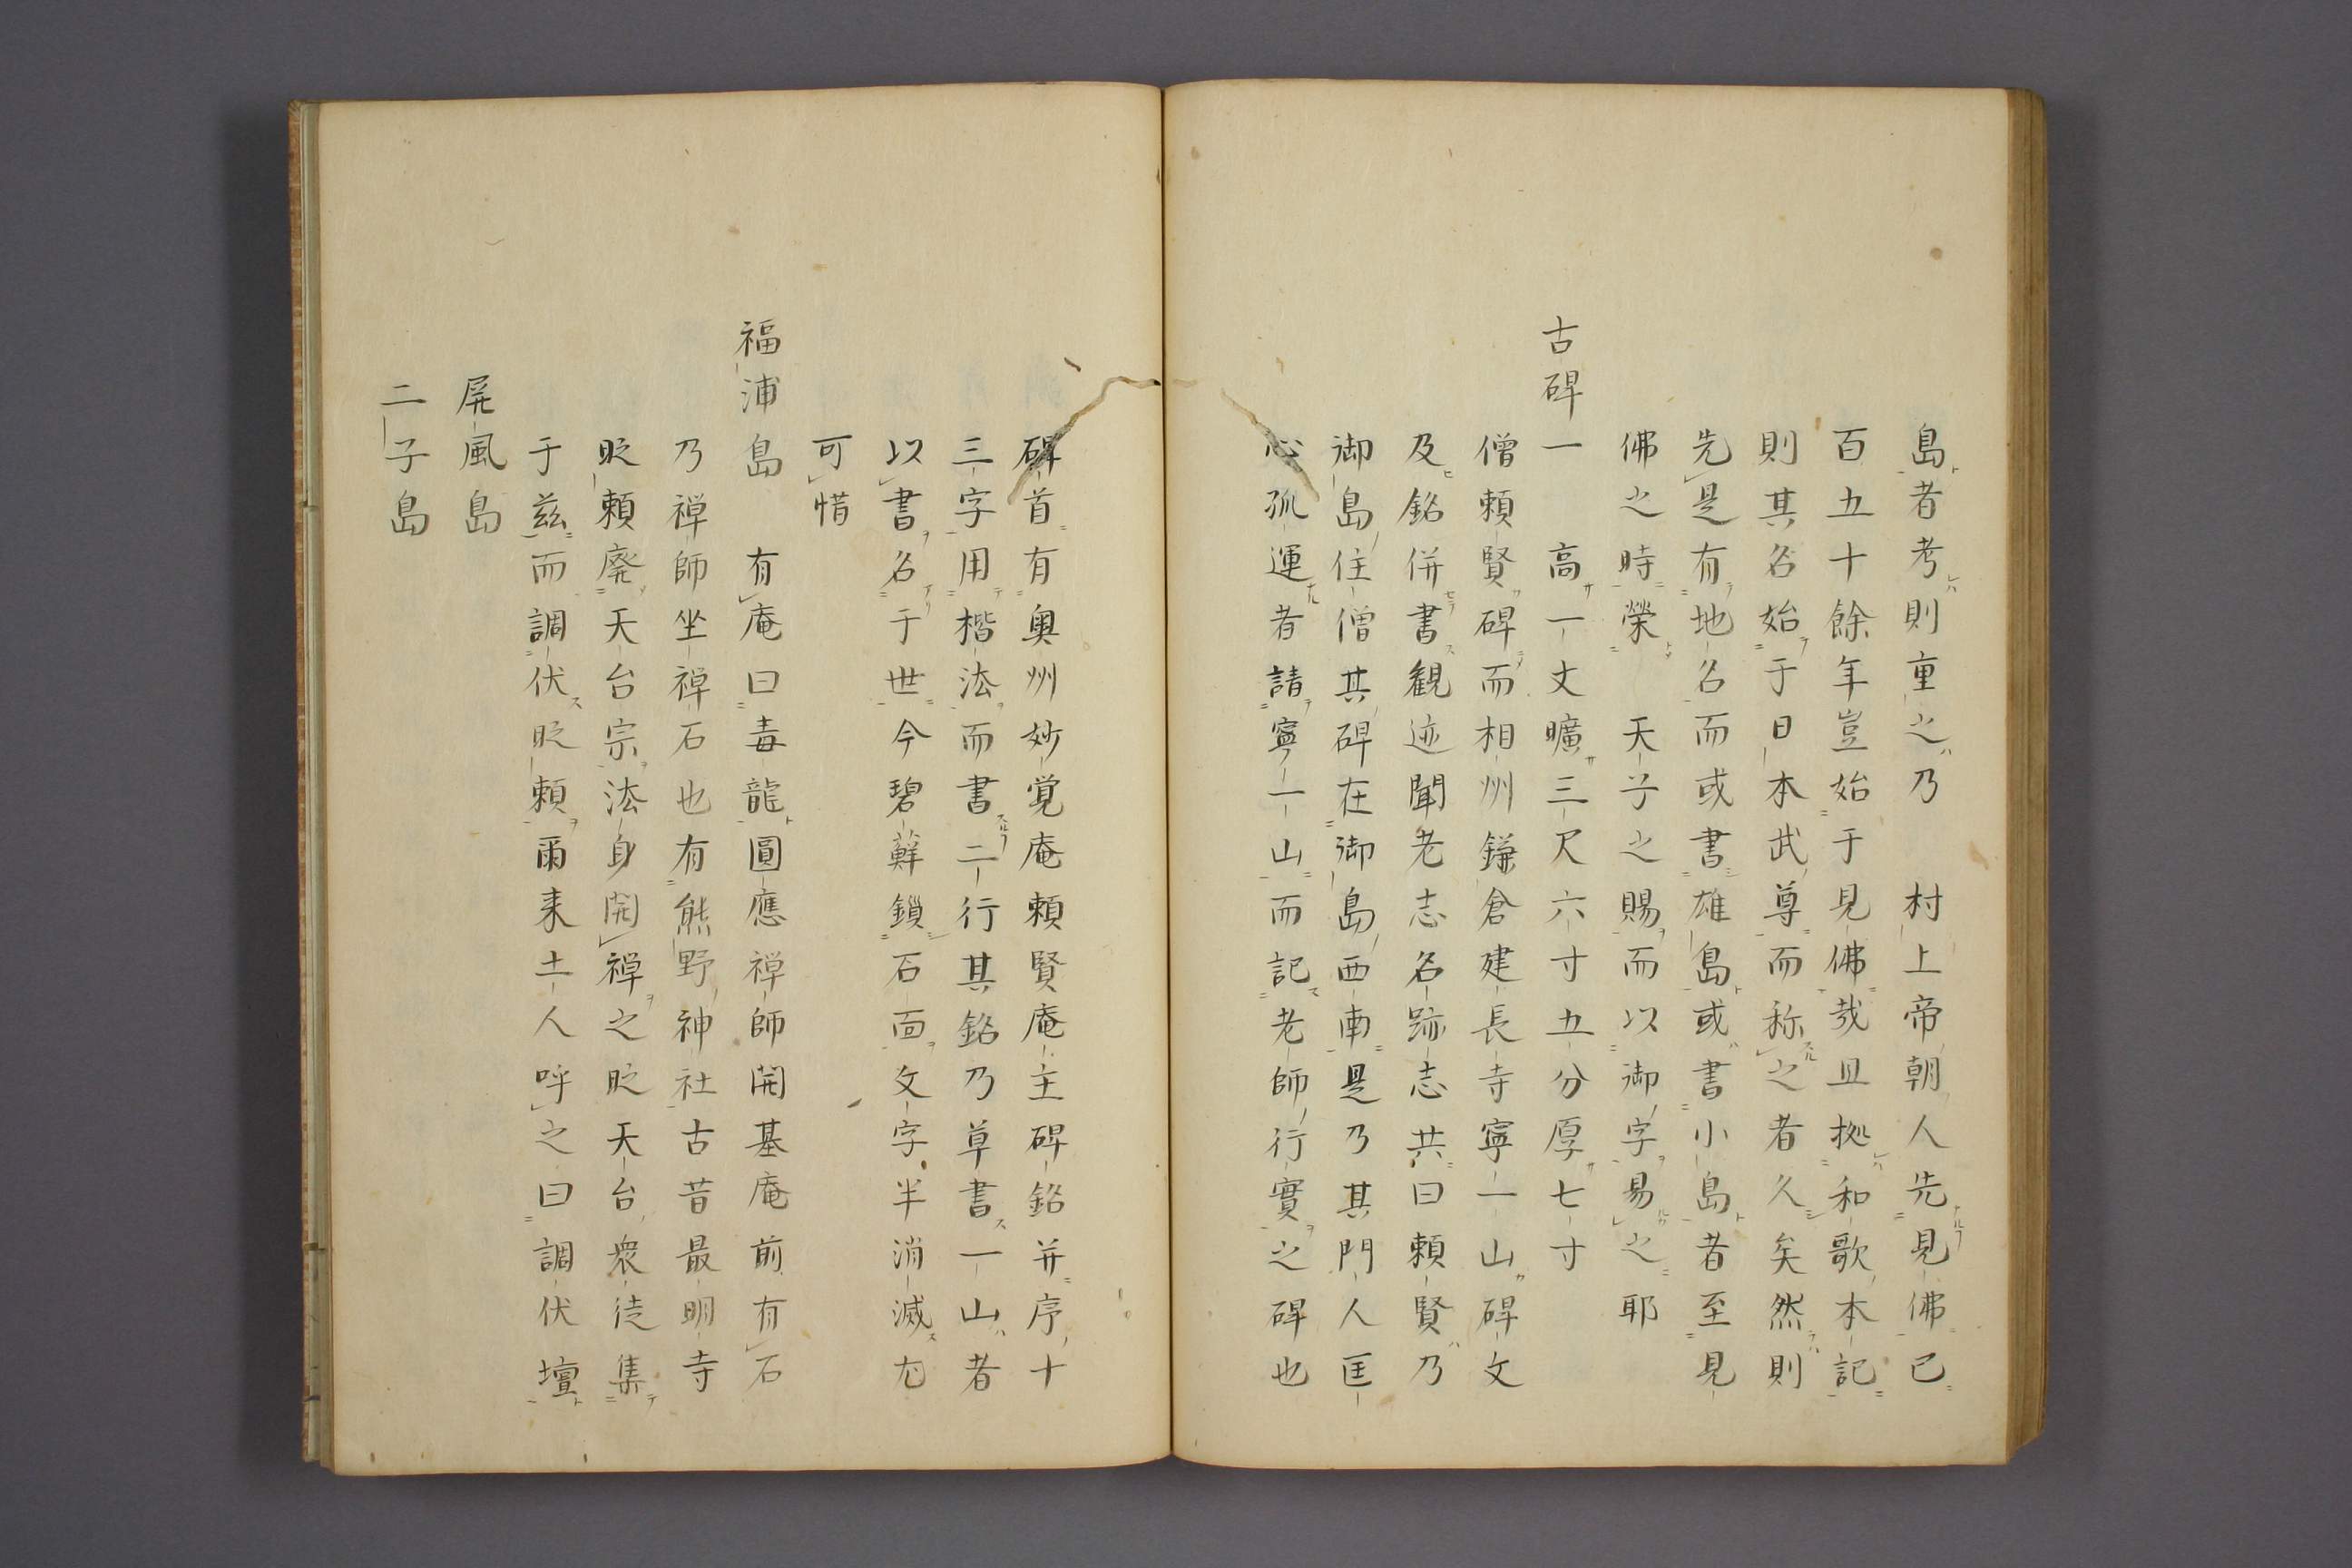 島者考則重之乃　村上帝朝人先見佛已
百五十餘年豈始于見佛哉且拠和歌本記
則其名始于日本武尊而称之者久矣然則
先是有地名而或書雄島或書小島者至見
佛之時榮　天子之賜而以御字易之耶
古碑一　高一丈曠三尺六寸五分厚七寸
僧頼賢碑而相州鎌倉建長寺寧一山碑文
及銘併書観迹聞老志名跡志共曰頼賢乃
御島住僧其碑在御島西南是乃其門人匡
心孤運者請寧一山而記老師行實之碑也
碑首有奥州妙覚庵頼賢庵主碑銘并序十
三字用楷法而書二行其銘乃草書一山者
以書名于世今碧蘚鎖石面文字半消滅尤
可惜
福浦島　有庵曰毒龍圓應禅師開基庵前有石
乃禅師坐禅石也有熊野神社古昔最明寺
貶頼廃天台宗法身開禅之貶天台衆徒集
于茲而調伏貶頼爾来土人呼之曰調伏壇
屏風島
二子島